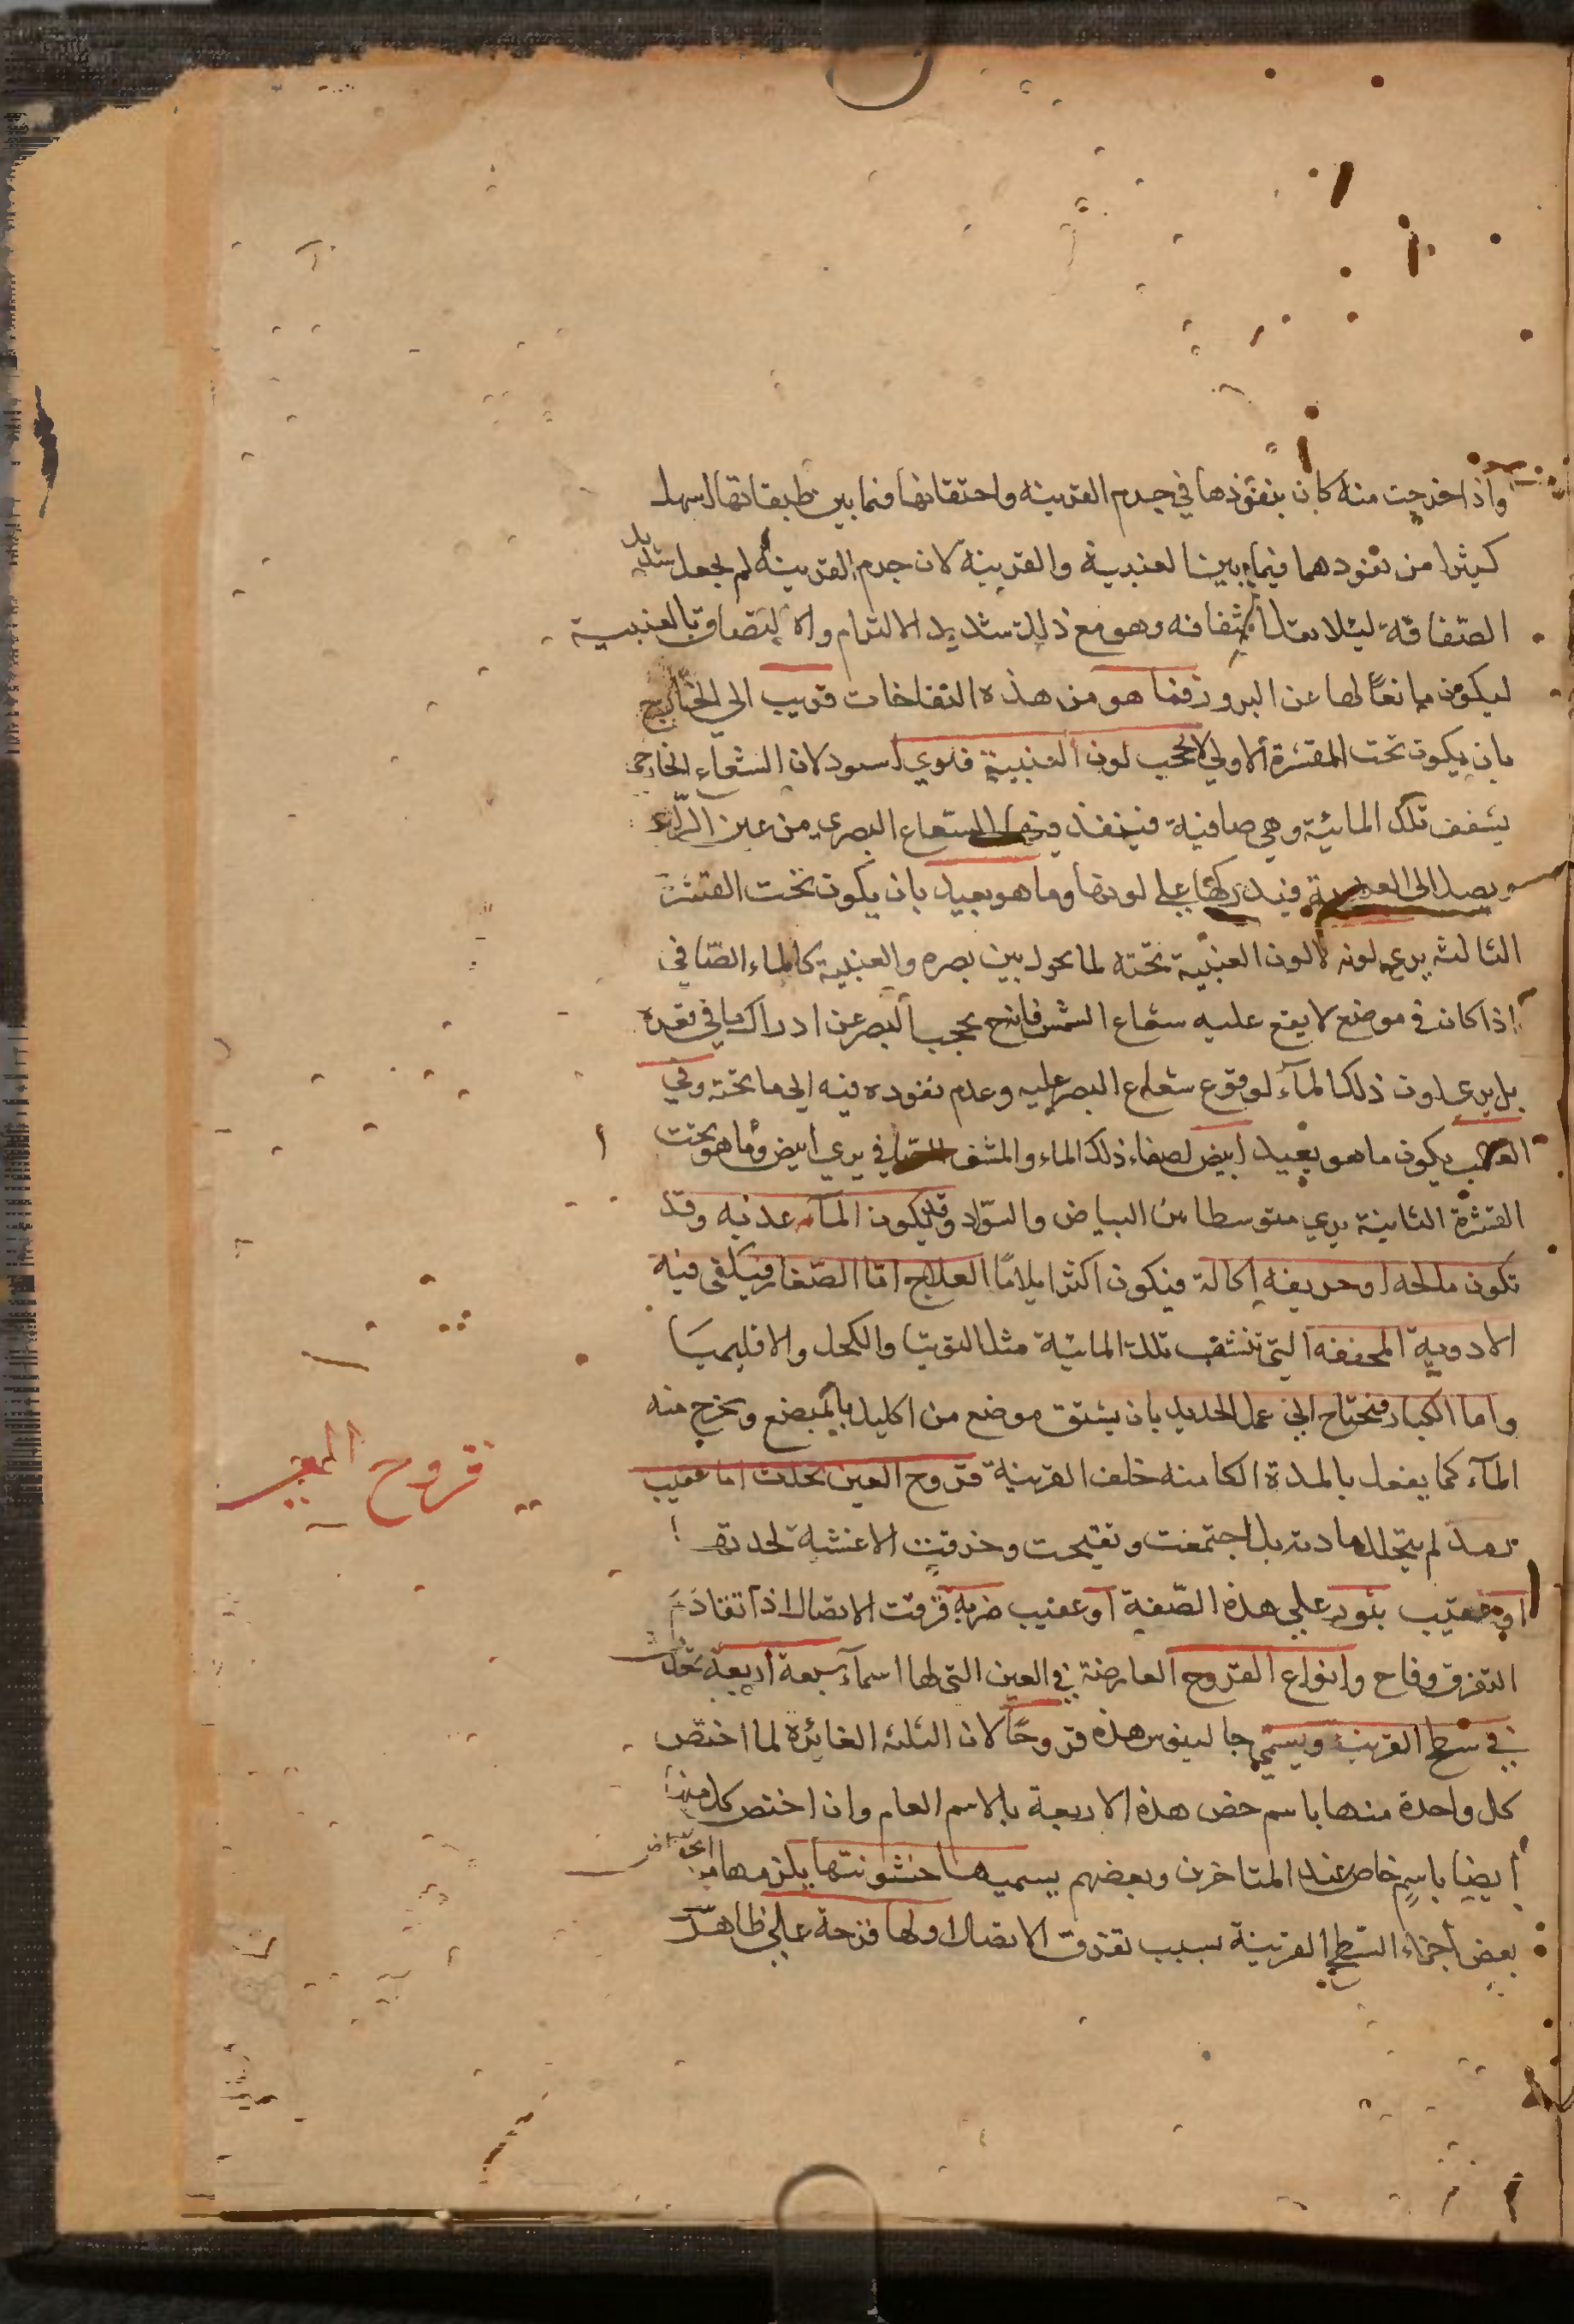 واذا خرجت منه كان ينفوذها في جرم القرنيه واحتقانها فيما بين طبقاتها اسهل
كثيرا من نفودهما فيما بين العنبية والقرنيه لان جرم القرنية لم يجعل شديد
الصّفاقة ليئلا يقل اشفافه وهو مع ذلك شديد الالتزام والالتصاق بالعنبية
ليكون مانعًا لها عن البروز فما هو من هذه النفاخات قريب الي الخارج
بان يكون تحت القشرة الاولي لا يحجب لون العنبية فيري اسود لان الشعاء الخارجي
يشفف تلك المائية وهي صافية فينفذ فيها الشعاع البصري من عين الرائي
ويصل الى العنبية فيدركها على لونها وما هو بعيد بان يكون تحت القشرة
الثالثه يري لونه لا لون العنبية تحته لما يحول بين بصره والعنبية كالماء الصّافي
اذا كان في موضع لا يقع عليه شعاع الشمس فانه يحجب البصر عن ادراك ما في قعره
بل يري لون ذلك المآء لوقوع شعاع البصر عليه وعدم نفوده فيه الى ما تحته وفي
يكون ما هو بعيد ابيض لصفاء ذلك الماء والمشف الصافي يري ابيض وما هو تحت
القشرة الثانية يري متوسطا بين البياض والسّواد وقد يكون المآء عذبه وقد
تكون مالحه او حريفه اكالة فيكون اكثر ايلامًا العلاج امّا الصّغار فيكفى فيه
الادوية المجففه التي تنشف تلك المائية مثل التوتيا والكحل والاقليميا
واما الكبار فتحتاج الى عمل الحديد بان يشق موضع من اكليل بالمبضع ويخرج منه
المآء كما يفعل بالمدة الكامنه خلف القرنية قروح العين تحدث اما عقيب
رمد لم يتحلل مادته بل اجتمعت وتقيحت وخرقت الاغشية لحدتها
او عقيب بثور علي هذه الصّفة او عقيب ضربه فرقت الاتصال اذا تقادم
التفرق وقاح وانواع القروح العارضة في العين التي لها اسمآء سبعة اربعة تحدث
في سطح القرنية ويسمي جالينوس هذه قروحًا لان الثلثه الغائرة لما اختص
كل واحدة منها باسم خص هذه الاربعة بالاسم العام وان اختص كل منها
أيضا باسمٍ خاص عند المتاخرين وبعضهم يسميها خشونتها يلزمها
بعض أجزاء السّطح القرنية بسبب تفرق الاتصال اولها قرحة علي ظاهر
قروح العين